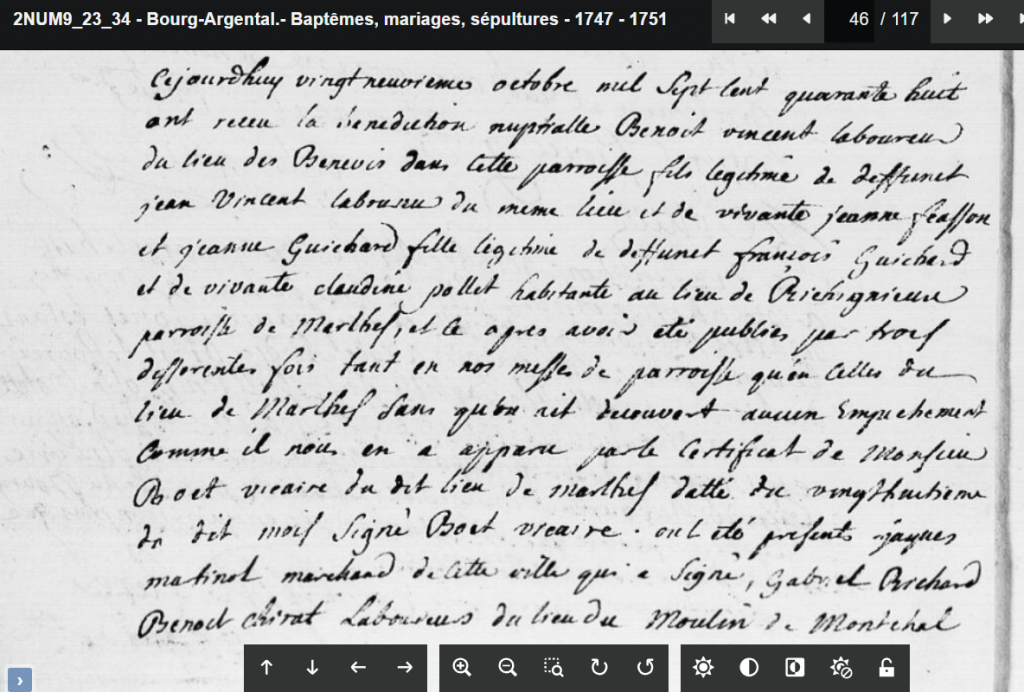 2NUM9_23_34 - Bourg-Argental.- Baptêmes, mariages, sépultures - 1747 - 1751
46 / 117
Cejourdhuy vingtneuvieme octobre mil sept cent quarante huit
ont receu la benediction nuptialle Benoit vincent laboureur
du lieu des Benevis dans cette parroisse fils legitime de deffunct
jean Vincent laboureur du meme lieu et de vivante jeanne feasson
et jeanne Guichard fille legitime de deffunct françois Guichard
et de vivante claudine pollet habitante au lieu de Richignieux
parroisse de Marlhes, et ce apres avoir eté publies par trois
differentes fois tant en nos messes de parroisse qu'en celles du
lieu de Marlhes sans qu'on ait decouvert aucun Empechement
Comme il nous en a apparu par le Certificat de Monsieur
Boet vicaire du dit lieu de marlhes datté du vingthuitieme
du dit mois signé Boet vicaire. ont eté presents jaques
matinol marchand de cette ville qui a signé, Gabriel Richard
Benoit chirat Laboureurs du lieu du Moulin de Montchal